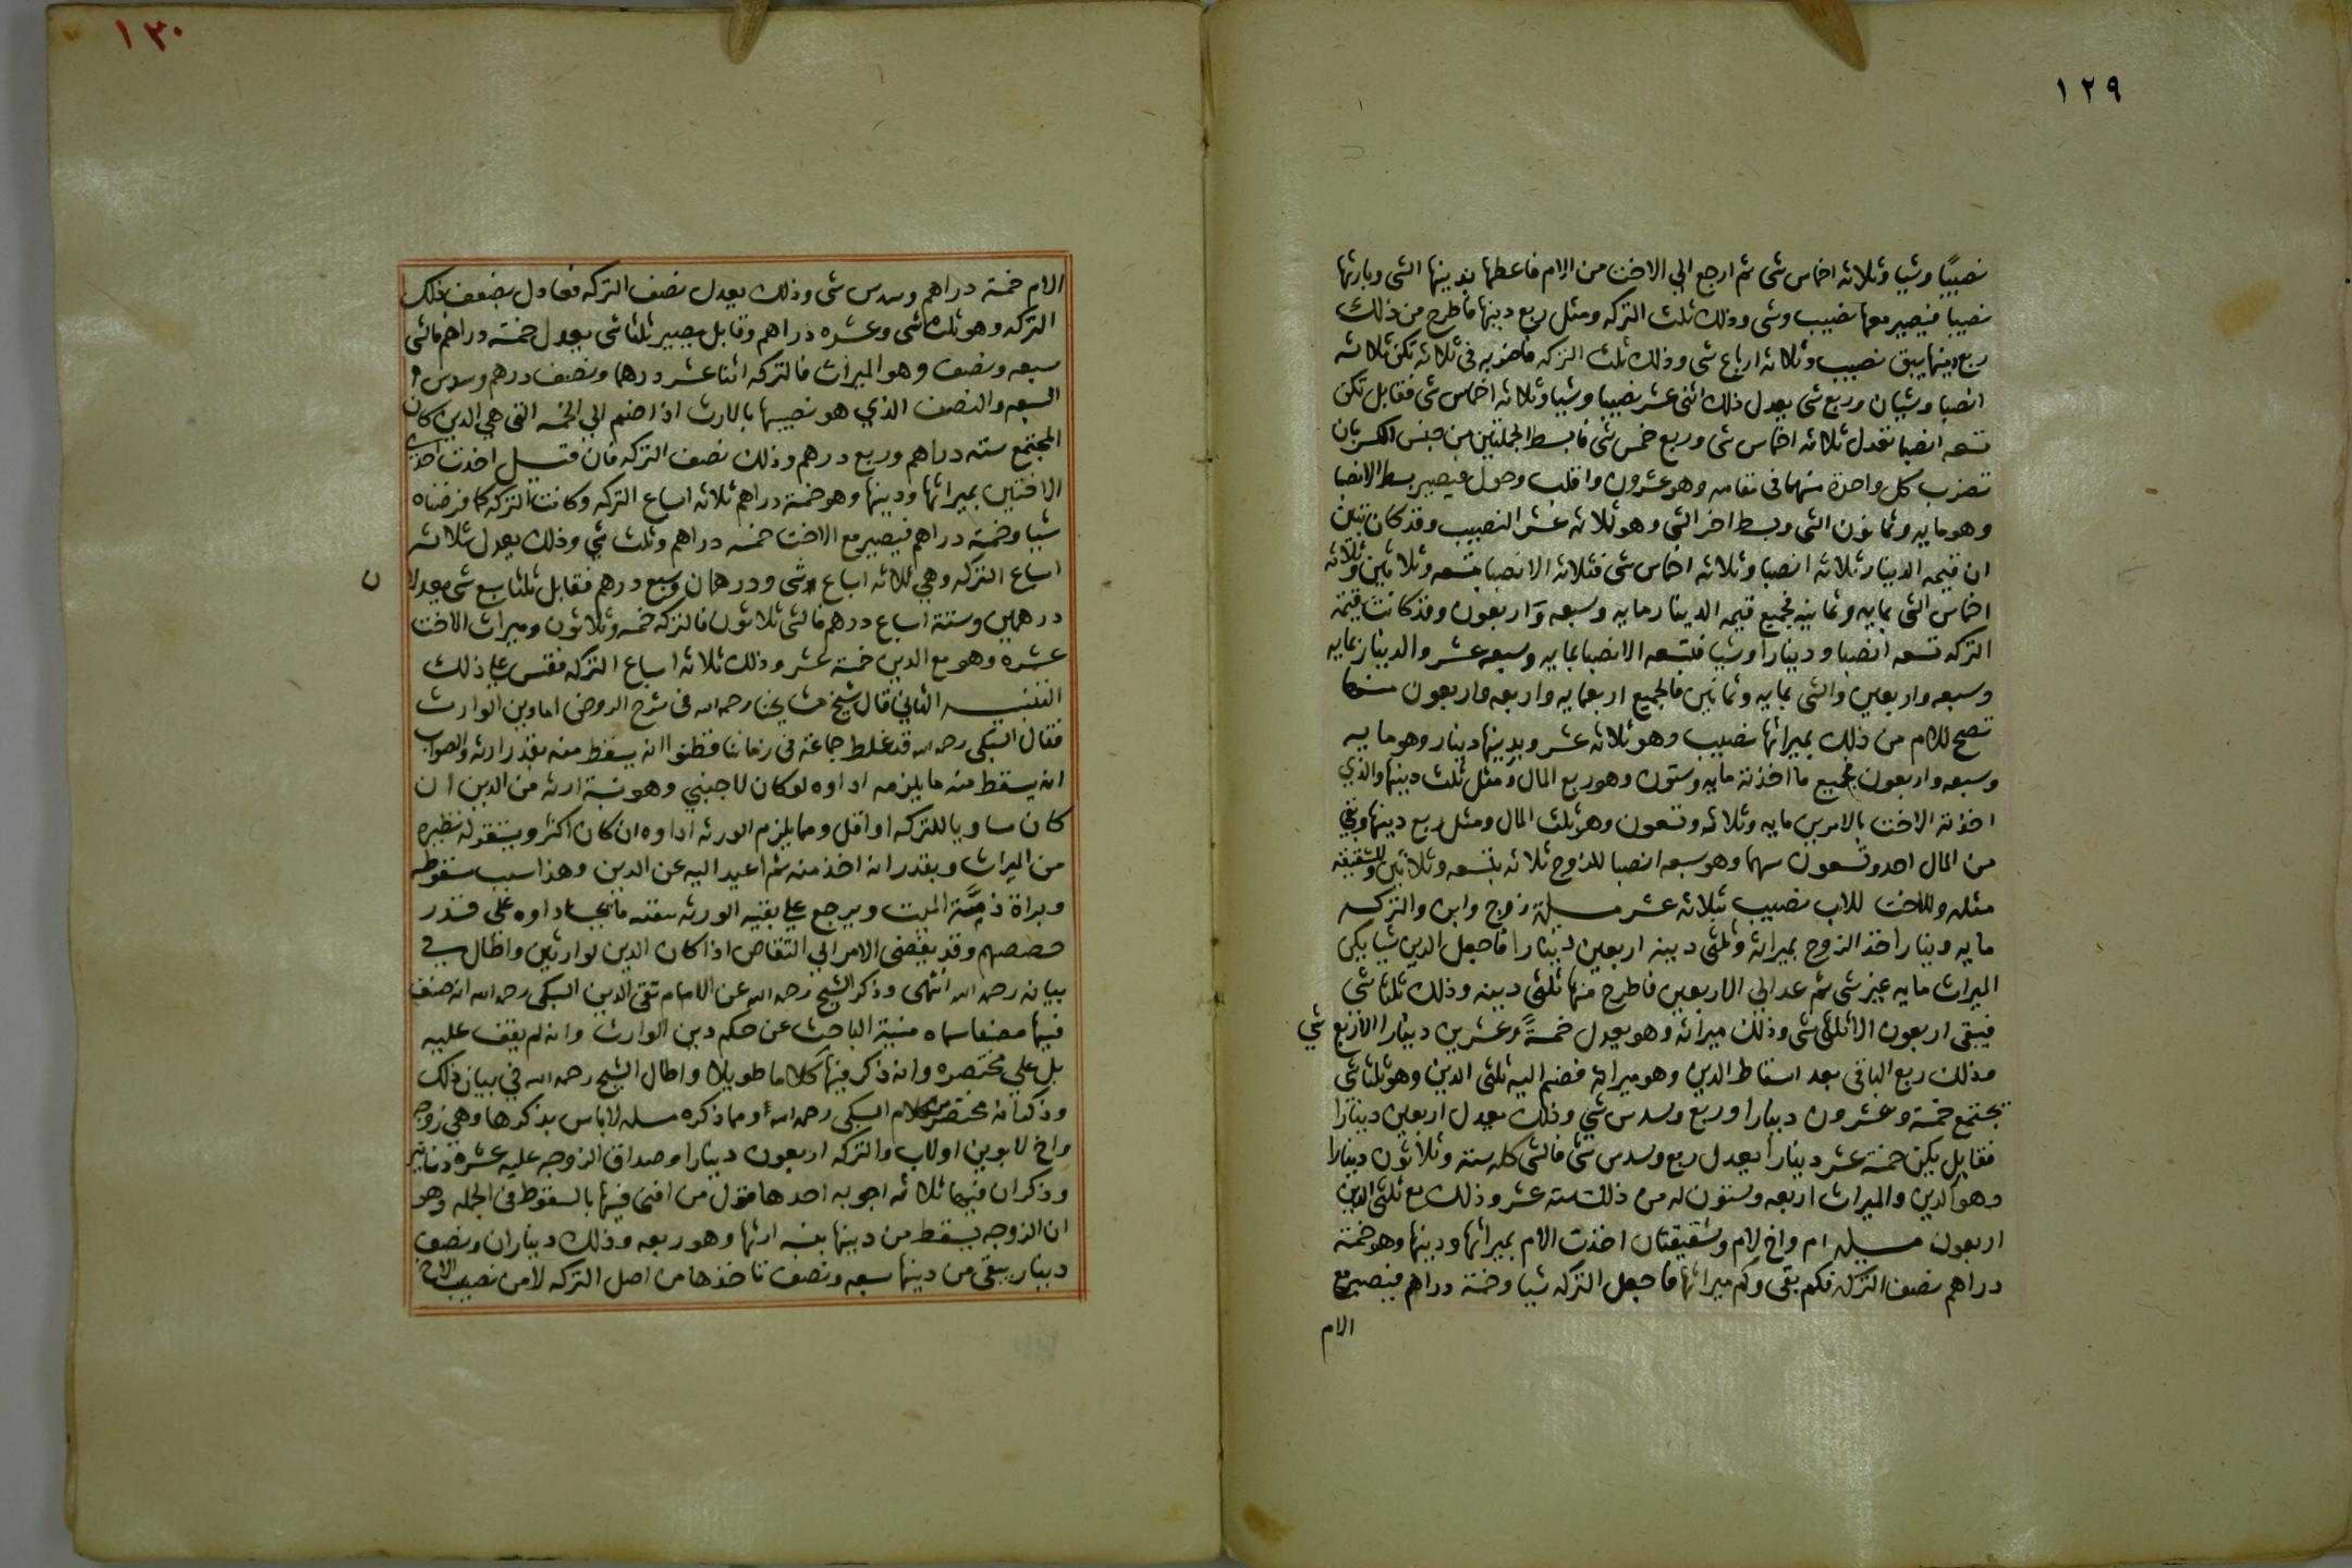 ١٢٩
نصيبا وشيا وثلاثه اخماس شى ثم ارجع الي الاخت من الام فاعطها بدينها الشى وبارثها
نصيبا فيصير معها نصيب وشى وذلك ثلث التركه ومثل ربع دينها فاطرح من ذلك
ربع دينها يبق نصيب وثلاثه ارباع شى وذلك ثلث التركه فاضربه فى ثلاثه تكن ثلاثه
انصبا وشيان وربع شى يعدل ذلك اثنى عشر نصيبا وشيا وثلاثه اخماس شى فقابل تكن
تسعه انصبا تعدل ثلاثه اخماس شى وربع خمس شى فابسط الجملتين من جنس الكسر بان
تضرب كل واحدة منهما فى مقامه وهو عشرون واقلب وحول فيصير بسط الانصبا
وهو مايه وثمانون الشى وبسط اخر الشى وهو ثلاثه عشر النصيب وقد كان تبين
ان قيمه الدينار ثلاثه انصبا وثلاثه اخماس شى فثلاثه الانصبا بتسعه وثلاثين وثلاثه
اخماس الشى بمايه وثمانيه فجميع قيمه الدينار مايه وسبعه واربعون وقد كانت قيمة
التركه تسعه انصبا ودينارا وشيا فتسعه الانصبا بمايه وسبعه عشر والدينار بمايه
وسبعه واربعين والشى بمايه وثمانين فالجميع اربعمايه واربعه واربعون منها
تصح للام من ذلك بميراثها نصيب وهو ثلاثه عشر وبدينها دينار وهو مايه
وسبعه واربعون فجميع ما اخذته مايه وستون وهو ربع المال ومثل ثلث دينها والذي
اخذته الاخت بالامرين مايه وثلاثه وتسعون وهو ثلث المال ومثل ربع دينها وبقي
من المال احد وتسعون سهما وهو سبعه انصبا للزوج ثلاثه بتسعه وثلاثين وللشقيقه
مثله وللاخت للاب نصيب بثلاثه عشر مسيلة زوج وابن والتركه
مايه دينار اخذ الزوج بميراثه وثلثى دينه اربعين دينارا فاجعل الدين شيا يكن
الميراث مايه غير شى ثم عد الي الاربعين فاطرح منها ثلثى دينه وذلك ثلثا شي
فيبقى اربعون الا ثلثى شى وذلك ميراثه وهو يعدل خمسةً وعشرين دينارا الا ربع شي
وذلك ربع الباقى بعد اسقاط الدين وهو ميراثه فضم اليه ثلثى الدين وهو ثلثا شى
يجتمع خمسة وعشرون دينارا وربع وسدس شي وذلك يعدل اربعين دينارا
فقابل يكن خمسة عشر دينارا يعدل ربع وسدس شى فالشى كله ستة وثلاثون دينارا
وهو الدين والميراث اربعه وستون له من ذلك سته عشر وذلك مع ثلثى الدين
اربعون مسيله ام واخ لام وشقيقتان اخذت الام بميراثها ودينها وهو خمسة
دراهم نصف التركه فكم بقى وكم ميراثها فاجعل التركه شيا وخمسة دراهم فيصير مع
الام
١٣٠
الام خمسة دراهم وسدس شى وذلك يعدل نصف التركه فعادل بضعف ذلك
التركه وهو ثلث شى وعشره دراهم وقابل يصير ثلثا شى يعدل خمسة دراهم فالشى
سبعه ونصف وهو الميراث فالتركه اثنا عشر درهما ونصف درهم وسدس
السبعه والنصف الذي هو نصيبها بالارث اذا ضم الي الخمسه التى هي الدين كان
المجتمع سته دراهم وربع درهم وذلك نصف التركه فان قيل اخذت احدى
الاختين بميراثها ودينها وهو خمسة دراهم ثلاثه اسباع التركه وكانت التركه كما فرضناه
شيا وخمسة دراهم فيصير مع الاخت خمسه دراهم وثلث شي وذلك يعدل ثلاثه
اسباع التركه وهي ثلاثه اسباع شى ودرهمان وسبع درهم فقابل ثلثا سبع شى يعدلان
درهمين وستة اسباع درهم فالشى ثلاثون فالتركه خمسه وثلاثون وميراث الاخت
عشره وهو مع الدين خمسة عشر وذلك ثلاثه اسباع التركه فقس علي ذلك
التنبيه الثاني قال شيخ مشايخنا رحمه الله فى شرح الروض اما دين الوارث
فقال السبكى رحمه الله قد غلط جماعة فى زماننا فظنوا انه يسقط منه بقدر ارثه والصواب
انه يسقط منه ما يلزمه اداوه لو كان لاجنبي وهو نسبة ارثه من الدين ان
كان مساويا للتركه او اقل ومما يلزم الورثه اداوه ان كان اكثر ويستقر له نظيره
من الميراث ويقدر انه اخذ منه ثم اعيد اليه عن الدين وهذا سبب سقوطه
وبراة ذمة الميت ويرجع علي بقيه الورثه ببقيه ما يجب اداوه على قدر
حصصهم وقد يفضى الامر الي التقاص اذا كان الدين لوارثين واطال في
بيانه رحمه الله انتهى وذكر الشيخ رحمه الله عن الامام تقى الدين السبكى رحمه الله انه صنف
فيها مصنفا سماه منية الباحث عن حكم دين الوارث وانه لم يقف عليه
بل علي مختصره وانه ذكر فيها كلاما طويلا واطال الشيخ رحمه الله في بيان ذلك
وذكر انه مختصر من كلام السبكى رحمه الله ومما ذكره مسله لا باس بذكرها وهي زوجه
واخ لابوين اولاب والتركه اربعون دينارا وصداق الزوجه عليه عشرة دنانير
وذكر ان فيها ثلاثه اجوبه احدها قول من افتى فيها بالسقوط فى الجمله وهو
ان الزوجه يسقط من دينها نسبه ارثها وهو ربعه وذلك ديناران ونصف
دينار يبقى من دينها سبعه ونصف تاخذها من اصل التركه لا من نصيب الاخ